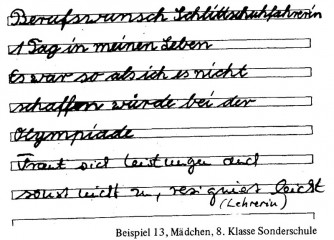 Berufswunsch Schlittschuhfahrerin
1 Tag in meinen Leben
Es war so als ich es nicht
schaffen würde bei der
Olympiade
Traut sich leistungen und
sonst leicht zu, resigniert leicht
(Lehrerin)
Beispiel 13, Mädchen, 8. Klasse Sonderschule